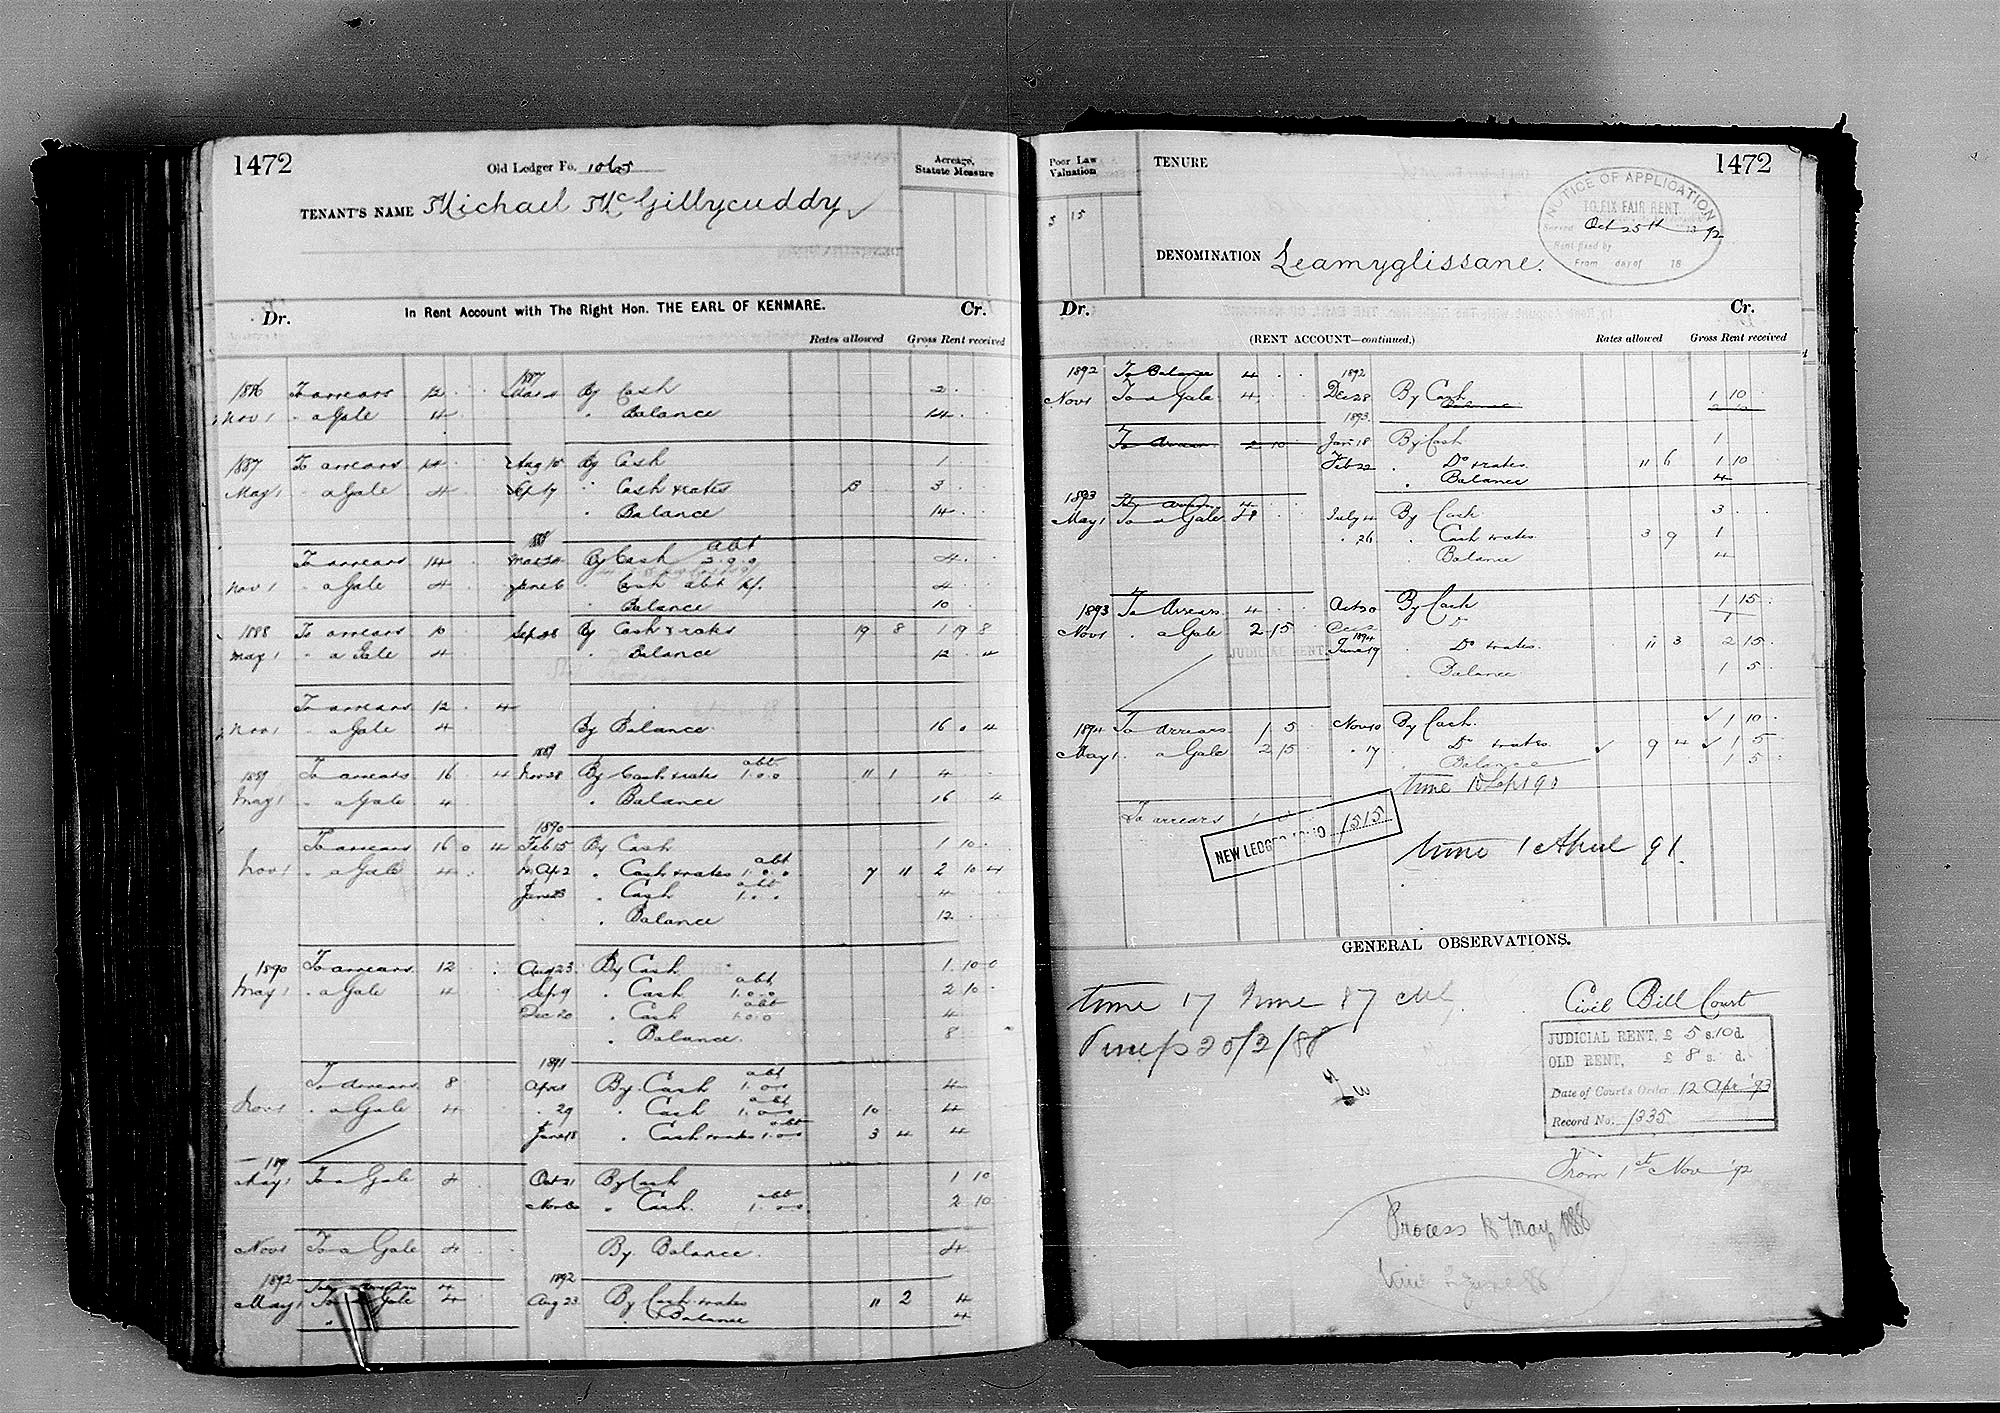 1472
Old Ledger Fo. 1065
Acreage,
Statute Measure
TENANT'S NAME Michael McGillycuddy
In Rent Account with The Right Hon. THE EARL OF KENMARE.
Dr. Cr.
Rates allowed Gross Rent received
1887
1886 To arrears 12 By Cash 2
Nov 1 " a Gale 4 " Balance 14
1887 To arrears 14 Aug 15 By Cash 1
May 1 " a Gale 4 Sep 17 " Cash & rates 3
" Balance 14
To arrears 14 By Cash abt 4
Nov 1 " a Gale 4 June 6 " Cash abt 4
" Balance 10
1888 To arrears 10 Sep 28 By Cash & rates 19 8 1 19 8
May 1 " a Gale 4 " Balance 12 4
To arrears 12 4
Nov 1 " a Gale 4 By Balance 16 0 4
1889
1889 To arrears 16 4 Nov 28 By Cash & rates abt 1.0.0 11 1 4
May 1 " a Gale 4 " Balance 16 4
1890
To arrears 16 0 4 Feb 15 By Cash 1 10
Nov 1 " a Gale 4 Ap 2 " Cash & rates abt 1.0.0 7 11 2 10 4
June 23 " Cash abt 1.0.0 4
" Balance 12
1890 To arrears 12 Aug 23 By Cash 1 10 0
May 1 " a Gale 4 Sep 9 " Cash abt 1.0.0 2 10
Dec 20 " Cash abt 1.0.0 4
" Balance 8
1891
To arrears 8 Apr 1 By Cash abt 1.0.0 4
Nov 1 " a Gale 4 " 29 " Cash abt 1.0.0 10 4
June 18 " Cash & rates abt 1.0.0 3 4 4
1891
May 1 To a Gale 4 Oct 21 By Cash 1 10
" Cash abt 1.0.0 2 10
Nov 1 To a Gale 4 By Balance 4
1892 To arrears 4 1892
May 1 To a Gale 4 Aug 23 By Cash & rates 11 2 4
" Balance 4
Poor Law
Valuation
5 15
TENURE
1472
NOTICE OF APPLICATION
TO FIX FAIR RENT
Served Oct 25th 1892
Rent fixed by
From day of 18
DENOMINATION Leamyglissane.
Dr. Cr.
(RENT ACCOUNT—continued.)
Rates allowed Gross Rent received
1892 To Balance 4 1892
Nov 1 To a Gale 4 Dec 28 By Cash 1 10
Balance 2 10
1893
To Arrears 2 10 Jan 18 By Cash 1
Feb 22 " Do & rates 11 6 1 10
" Balance 4
1893 To Arrears 4
May 1 To a Gale 4 July 4 By Cash 3
" 26 " Cash & rates 3 9 1
Balance 4
1893 To Arrears 4 Oct 20 By Cash 1 15
Nov 1 " a Gale 2 15 Dec 1
JUDICIAL RENT
1894
June 19 " Do & rates 11 3 2 15
" Balance 1 5
1894 To Arrears 1 5 Nov 10 By Cash 1 10
May 1 " a Gale 2 15 " 17 Do & rates 9 4 1 5
" Balance 1 5
time 10 Sep 90
To arrears
NEW LEDGER FOLIO 1515
time 1 April 91.
GENERAL OBSERVATIONS.
time 17 June 87
20/2/88
Civil Bill Court
JUDICIAL RENT, £ 5 s. 10 d.
OLD RENT, £ 8 s. d.
Date of Court's Order 12 Apr '93
Record No. 1335
From 1st Nov '92
Process 18 May 1888
June 88